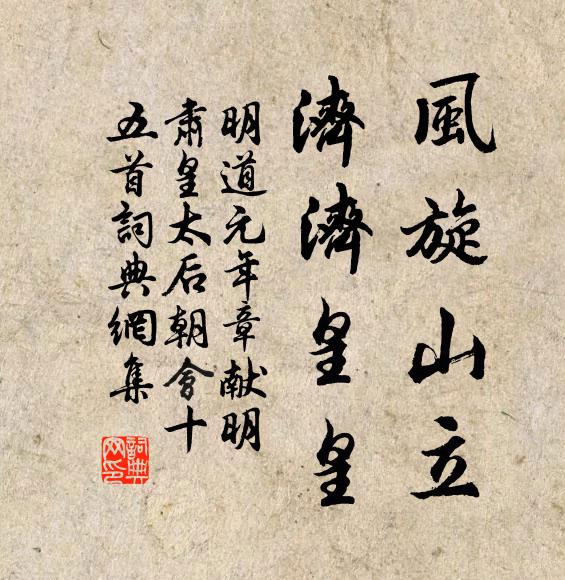 風旋山立
濟濟皇皇
明道元年章献明
肅皇太后朝會十
五首詞典網集
詞典
网印